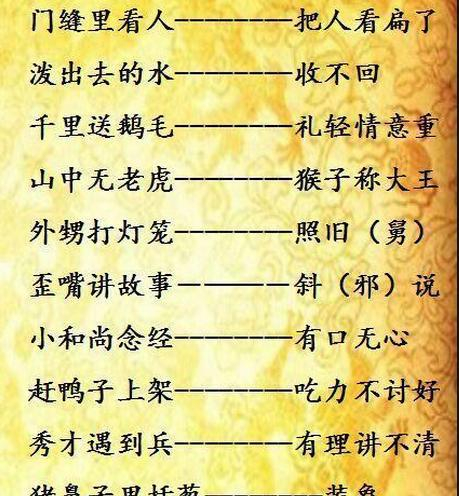 门缝里看人--------把人看扁了
泼出去的水--------收不回
千里送鹅毛--------礼轻情意重
山中无老虎--------猴子称大王
外甥打灯笼--------照旧（舅）
歪嘴讲故事－－－－斜（邪）说
小和尚念经--------有口无心
赶鸭子上架--------吃力不讨好
秀才遇到兵--------有理讲不清
猪鼻子里插葱--------装象